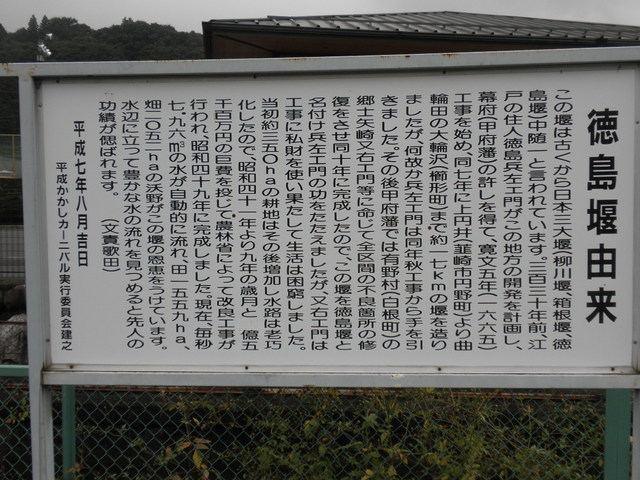 徳島堰由来
この堰は古くから日本三大堰(柳川堰、箱根堰、徳
島堰)中随一と言われています。三百三十年前、江
戸の住人徳島兵左エ門がこの地方の開発を計画し、
幕府(甲府藩)の許しを得て、寛文五年(一六六五)
工事を始め、同七年に上円井(韮崎市円野町)より曲
輪田の大輪沢(櫛形町)まで約一七kmの堰を造り
ましたが、何故か兵左エ門は同年秋工事から手を引
きました。その後甲府藩では有野村(白根町)の
郷士矢崎又右エ門等に命じて全区間の不良箇所の修
復をさせ同十年に完成したので、この堰を徳島堰と
名付け兵左エ門の功をたたえましたが、又右エ門は
工事に私財を使い果たして生活は困窮しました。
当初約三五〇haの耕地はその後増加し水路は老巧
化したので、昭和四十一年より九年の歳月と 億五
千百万円の巨費を投じて農林省によって改良工事が
行われ、昭和四十九年に完成しました。現在、毎秒
七・九六m³の水が自動的に流れ、田一五五九ha、
畑二〇五二haの沃野がこの堰の恩恵をうけています。
水辺に立って豊かな水の流れを見つめると先人の
功績が偲ばれます。 (文責歌田)
平成七年八月吉日
平成かかしカーニバル実行委員会建之